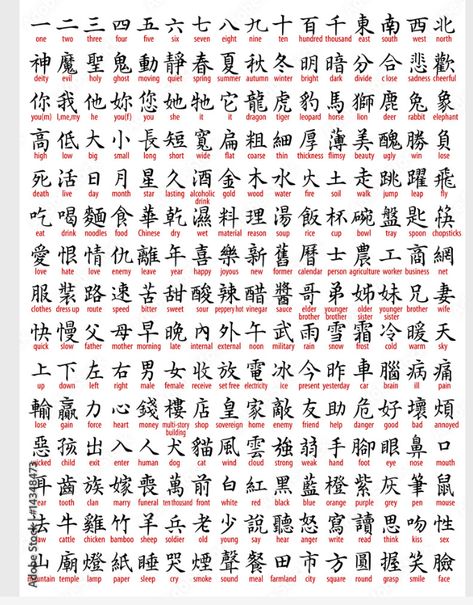 一二三四五六七八九十百千東南西北
one two three four five six seven eight nine ten hundred thousand east south west north
神魔聖鬼動靜春夏秋冬明暗分合悲歡
deity evil holy ghost moving quiet spring summer autumn winter bright dark divide c lose sadness cheerful
你我他妳您她牠它龍虎豹馬獅鹿兔象
you(m) I,me,my he you(f) you she it it dragon tiger leopard horse lion deer rabbit elephant
高低大小長短寬扁粗細厚薄美醜勝負
high low big small long short wide flat coarse thin thickness flimsy beauty ugly win lose
死活日月星久酒金木水火土走跳躍飛
death live day month star lasting alcoholic drink gold wood water fire soil walk jump leap fly
吃喝麵食華乾濕料理湯飯杯碗盤匙筷
eat drink noodles food Chinese dry wet material reason soup rice cup bowl tray spoon chopsticks
愛恨情仇離年喜樂新舊曆士農工商網
love hate love enemy leave year happy joyous new former calendar person agriculture worker business net
服裝路速苦甜酸辣醋醬哥弟姊妹兄妻
clothes dress up route speed bitter sweet sour peppery hot vinegar sauce elder brother younger brother elder sister younger sister brother wife
快慢父母早晚內外午武雨雪霜冷暖天
quick slow father mother morning night internal external noon military rain snow frost cold warm sky
上下左右男女收放電冰今昨車腦病痛
up down left right male female receive set free electricity ice present yesterday car brain ill pain
輸贏力心錢樓店皇家敵友助危好壞煩
lose gain force heart money multi-story building shop sovereign home enemy friend help danger good bad annoyed
惡孩出入人犬貓風雲強弱手腳眼鼻口
wicked child exit enter human dog cat wind cloud strong weak hand foot eye nose mouth
耳齒族嫁喪萬前白紅黑藍橙紫灰筆鼠
ear tooth clan marry funeral ten thousand front white red black blue orange purple grey pen mouse
去牛雞竹羊兵老少說聽怒寫讀思吻性
go cattle chicken bamboo sheep soldier old young say hear angry write read think kiss sex
山廟燈紙睡哭煙聲餐田市方圓握笑臉
mountain temple lamp paper sleep cry smoke sound meal farmland city square round grasp smile face
Adobe Stock | #14348473